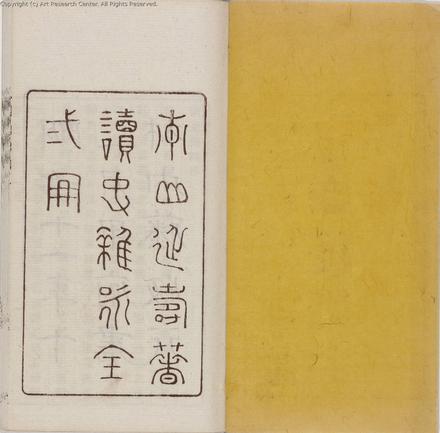 Copyright (c) Art Research Center. All Rights Reserved.
青山延壽著
讀史雜詠全
弍冊